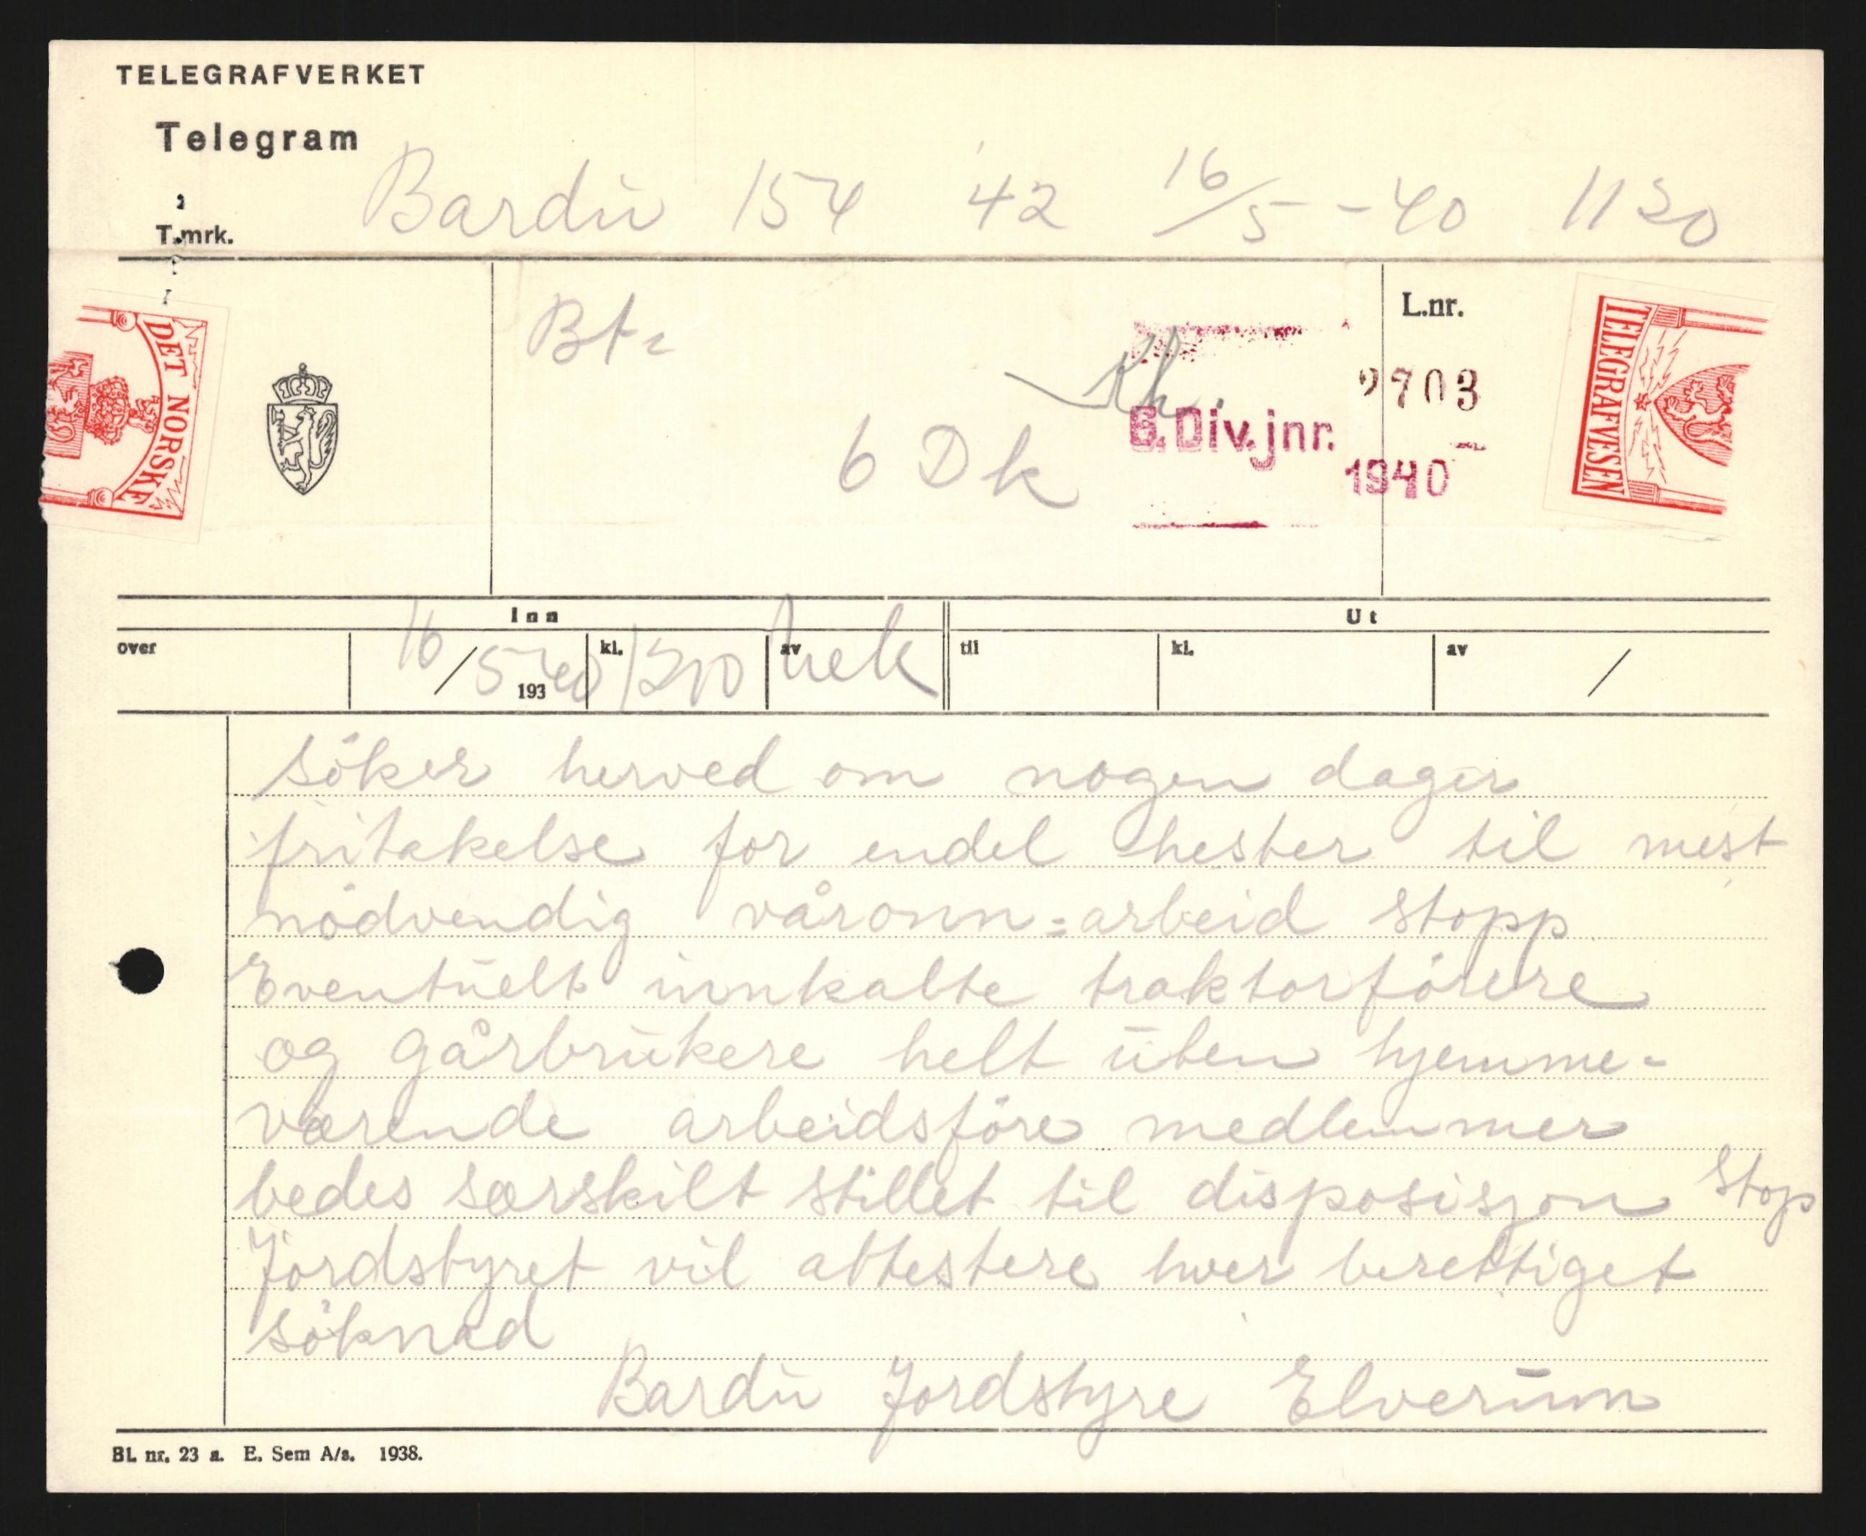 TELEGRAFVERKET
Telegram
T.mrk.
Bardu 154 42 16/5-40 1120
DET NORSKE
Bt=
Kh.
L.nr.
2703
6 Dk
6. Div. jnr.
1940
TELEGRAFVESEN
Inn
Ut
over
16/5 40
193
kl. 1200
av
til
kl.
av
/
söker herved om nogen dager
fritakelse for endel hester til mest
nödvendig våronn=arbeid stopp
Eventuelt innkalte traktorförere
og gårbrukere helt uten hjemme=
værende arbeidsföre medlemmer
bedes særskilt stillet til disposisjon stop
Jordstyret vil attestere hver berettiget
söknad
Bardu Jordstyre Elverum
Bl. nr. 23 a. E. Sem A/s. 1938.